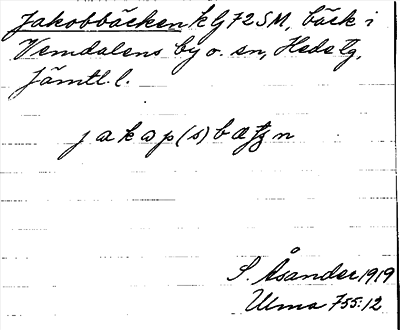 Jakobbäcken k G72SM, bäck i
Vemdalens by o. sn, Hede tg,
Jämtl. l.
jakap(s)bætʃn
S. Åsander 1919
Ulma 755:12